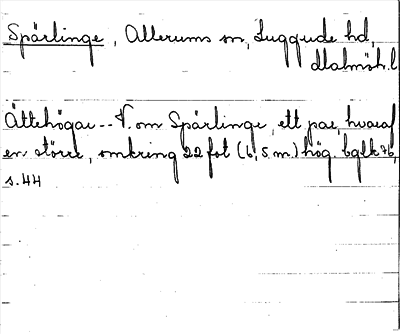 Spärlinge, Allerums sn, Luggude hd,
Malmöh. l
Ättehögar -- V. om Spärlinge, ett par, hvaraf
en större, omkring 22 fot (6,5 m.) hög.
s. 44